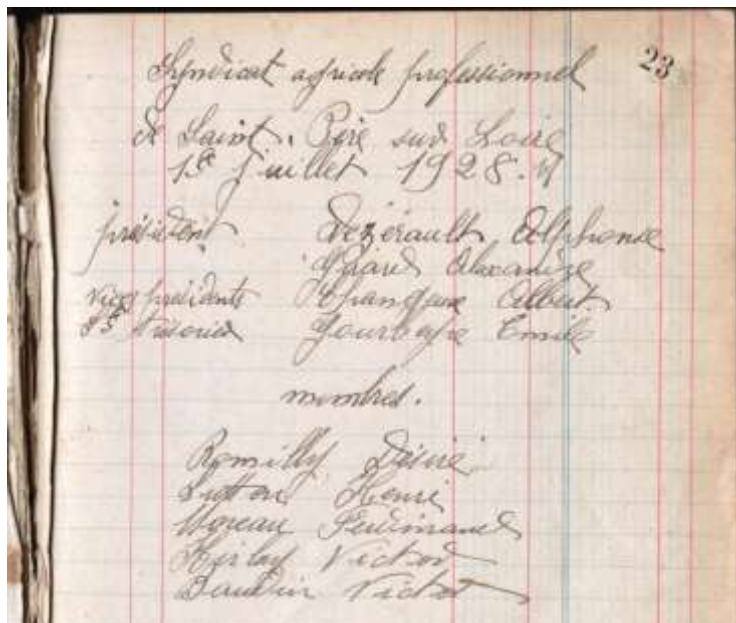 23
Syndicat agricole professionnel
de Saint. Père sur Loire
1er juillet 1928.
président Dezérault Alphonse
Alexandre
vices présidents Albert
trésorier Emile
membres.
Romilly Désiré
Lutton Henri
Moreau Ferdinand
Victor
Baudin Victor